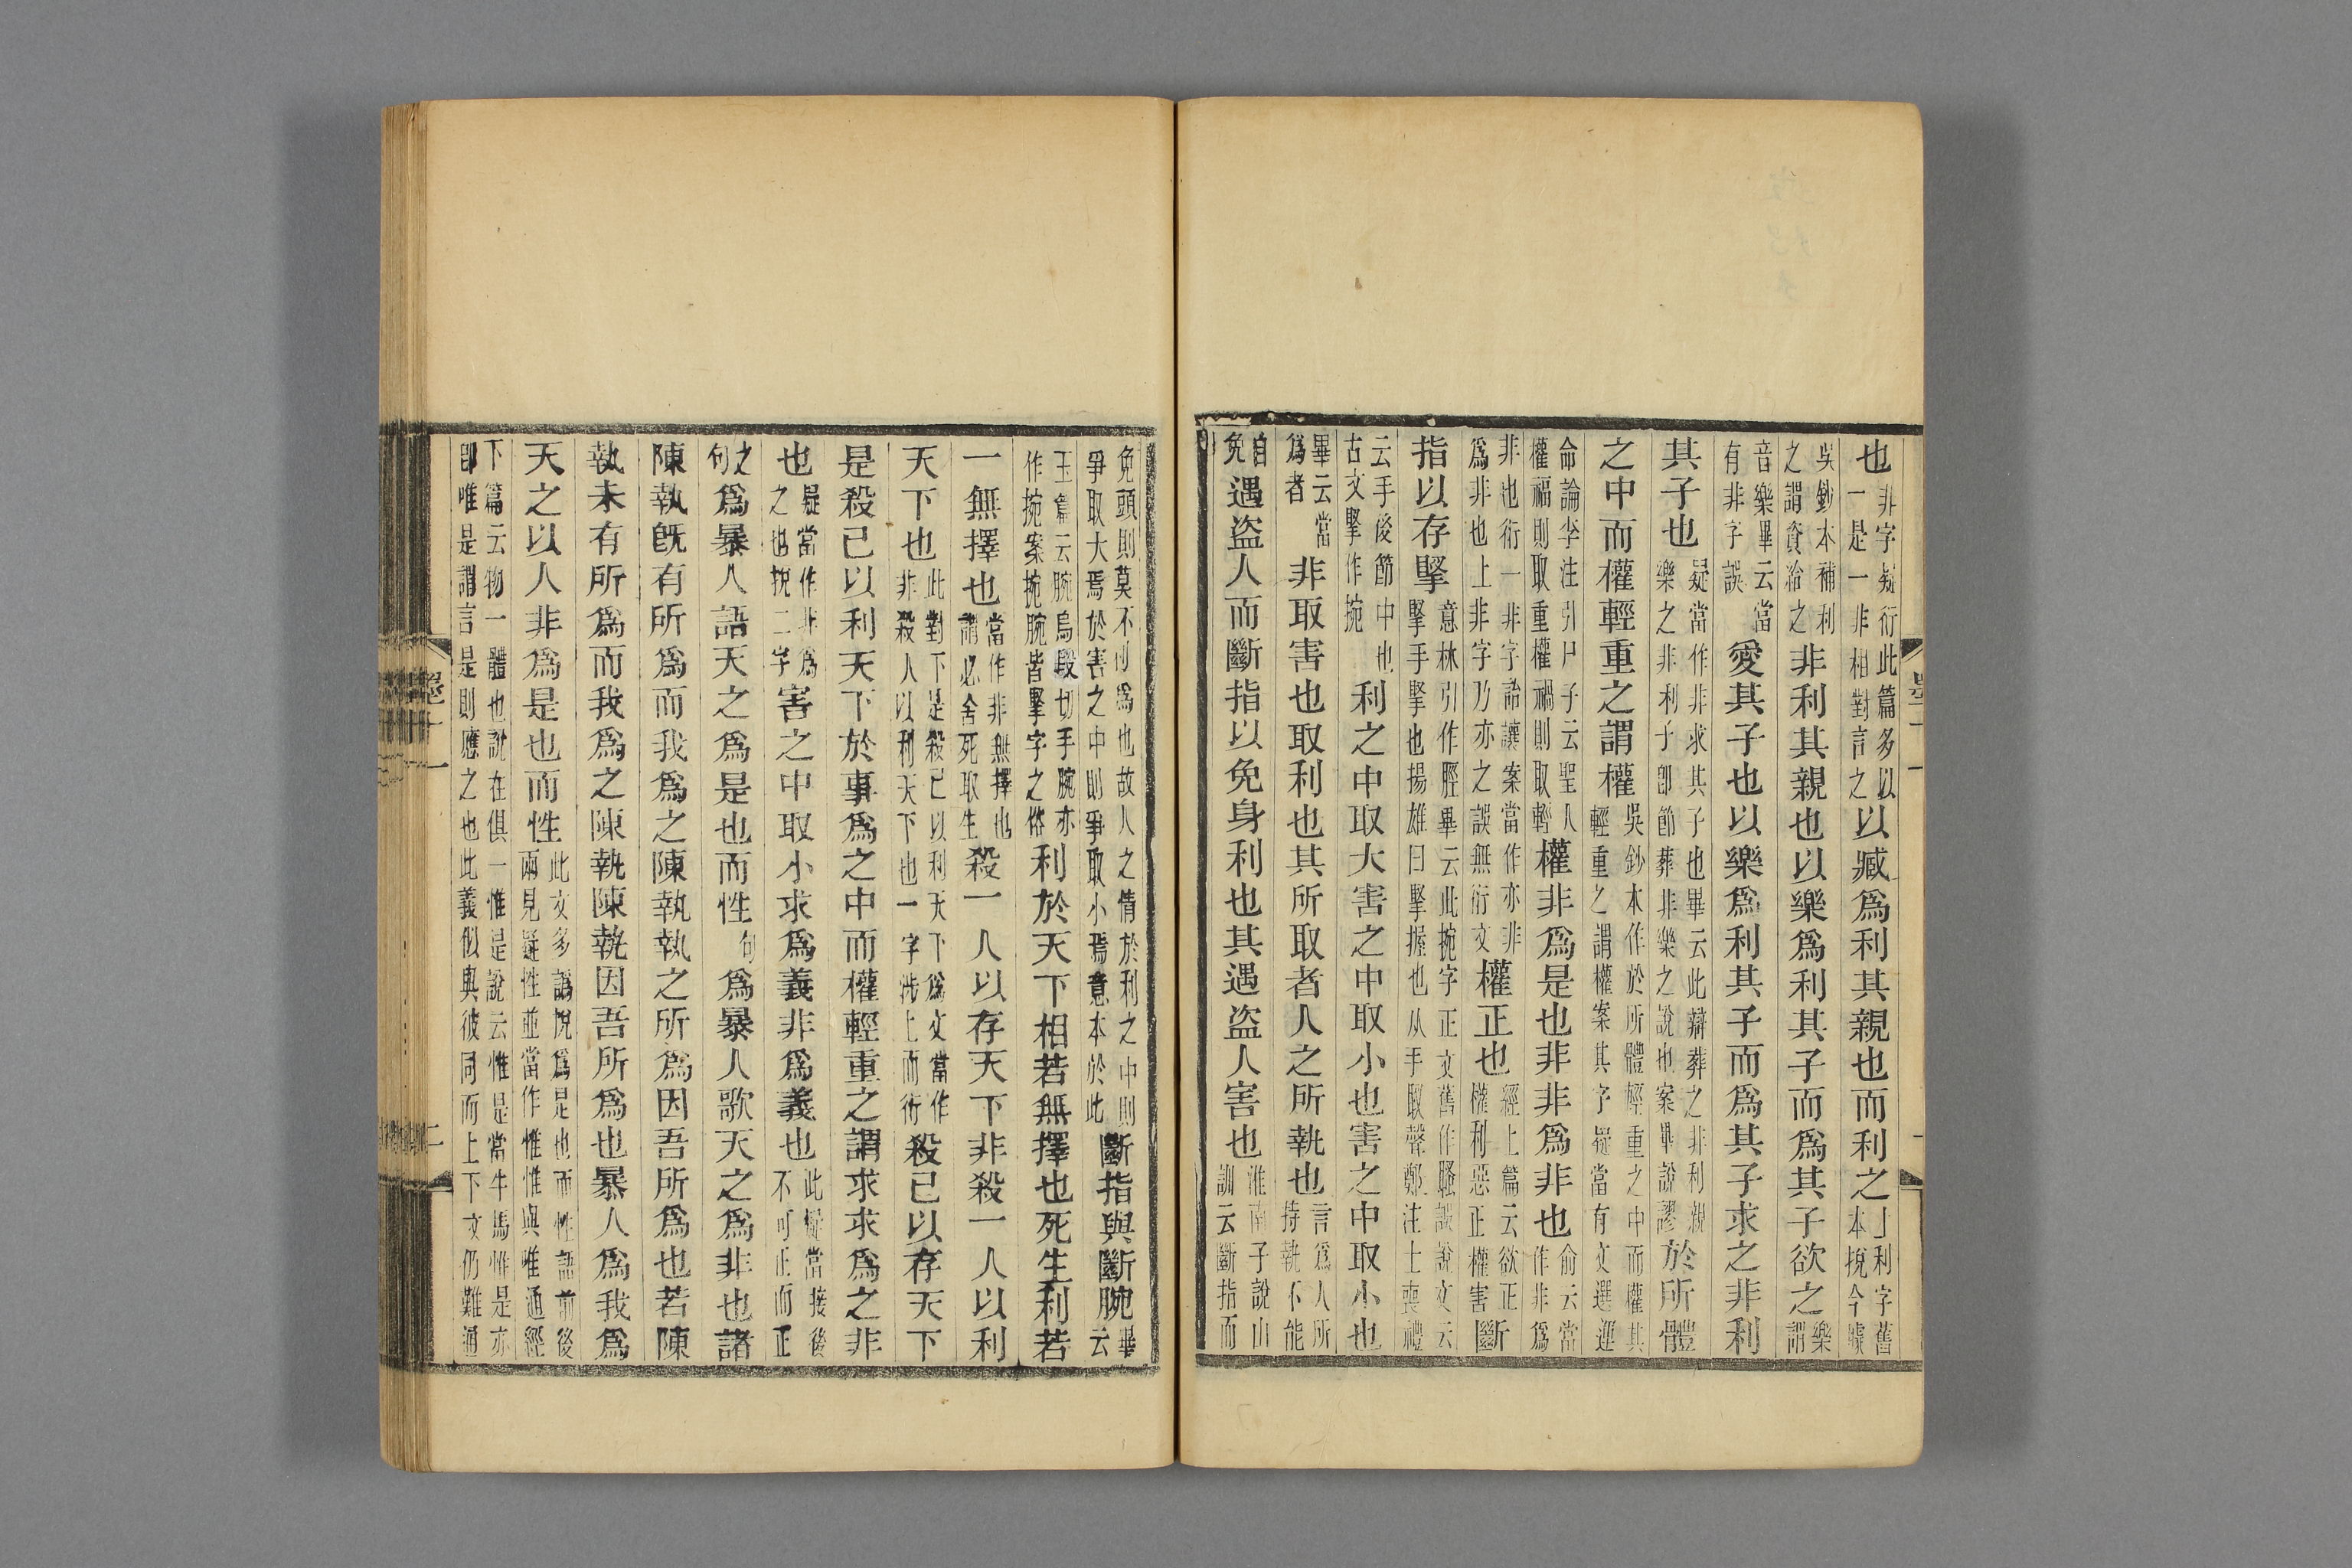 也非字疑衍此篇多以一是一非相對言之以臧爲利其親也而利之利字舊本捝今據
吳鈔本補利之謂資給之非利其親也以樂爲利其子而爲其子欲之樂謂
音樂畢云當有非字誤愛其子也以樂爲利其子而爲其子求之非利
其子也疑當作非求其子也畢云此辯葬之非利親樂之非利子卽節葬非樂之說也案畢說謬於所體
之中而權輕重之謂權吳鈔本作於所體輕重之中而權其輕重之謂權案其字疑當有文選運
命論李注引尸子云聖人權福則取重權禍則取輕權非爲是也非非爲非也俞云當作非爲
非也衍一非字詒讓案當作亦非爲非也上非字乃亦之誤無衍文權正也經上篇云欲正權利惡正權害斷
指以存掔意林引作脛畢云此捥字正文舊作䏶誤說文云掔手掔也揚雄曰掔握也从手臤聲鄭注士喪禮
云手後節中也古文掔作捥利之中取大害之中取小也害之中取小也
畢云當爲者非取害也取利也其所取者人之所執也言爲人所持執不能
自免遇盜人而斷指以免身利也其遇盜人害也淮南子說山訓云斷指而
免頭則莫不利爲也故人之情於利之中則爭取大焉於害之中則爭取小焉意本於此斷指與斷腕畢云
玉篇云腕烏段切手腕亦作捥案捥腕皆掔字之俗利於天下相若無擇也死生利若
一無擇也當作非無擇也謂必舍死取生殺一人以存天下非殺一人以利
天下也此對下是殺己以利天下爲文當作非殺人以利天下也一字涉上而衍殺己以存天下
是殺己以利天下於事爲之中而權輕重之謂求求爲之非
也疑當作非爲之也捝二字害之中取小求爲義非爲義也此疑當接後不可正而正
之句爲暴人語天之爲是也而性句爲暴人歌天之爲非也諸
陳執旣有所爲而我爲之陳執執之所爲因吾所爲也若陳
執未有所爲而我爲之陳執陳執因吾所爲也暴人爲我爲
天之以人非爲是也而性此文多譌捝爲是也而性語前後兩見疑性並當作惟惟與唯通經
下篇云物一體也說在俱一惟是說云惟是當牛馬惟是亦卽唯是謂言是則應之也此義似與彼同而上下文仍難通
墨十一
二